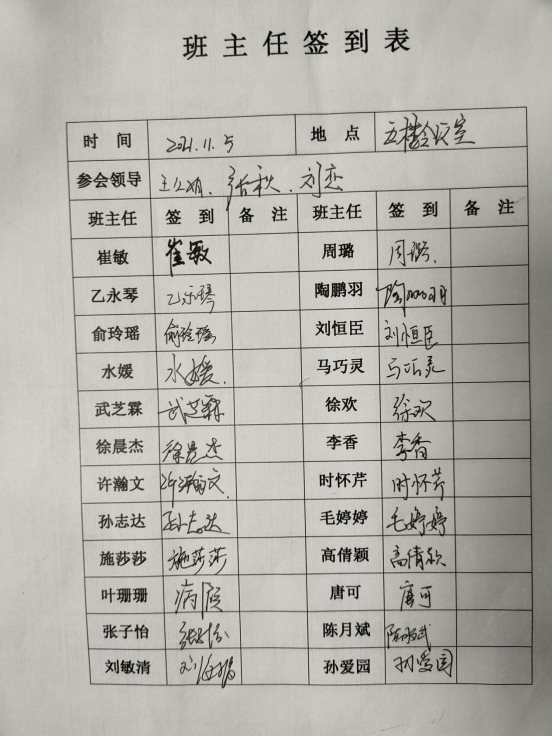 班主任签到表
时 间 2021.11.5 地 点 五楼会议室
参会领导 张秋、刘恋
班主任 签 到 备 注 班主任 签 到 备 注
崔敏 崔敏 周璐 周璐
乙永琴 乙永琴 陶鹏羽 陶鹏羽
俞玲瑶 俞玲瑶 刘恒臣 刘恒臣
水媛 水媛 马巧灵 马巧灵
武芝霖 武芝霖 徐欢 徐欢
徐晨杰 徐晨杰 李香 李香
许瀚文 许瀚文 时怀芹 时怀芹
孙志达 孙志达 毛婷婷 毛婷婷
施莎莎 施莎莎 高倩颖 高倩颖
叶珊珊 病假 唐可 唐可
张子怡 张子怡 陈月斌 陈月斌
刘敏清 孙爱园 孙爱园